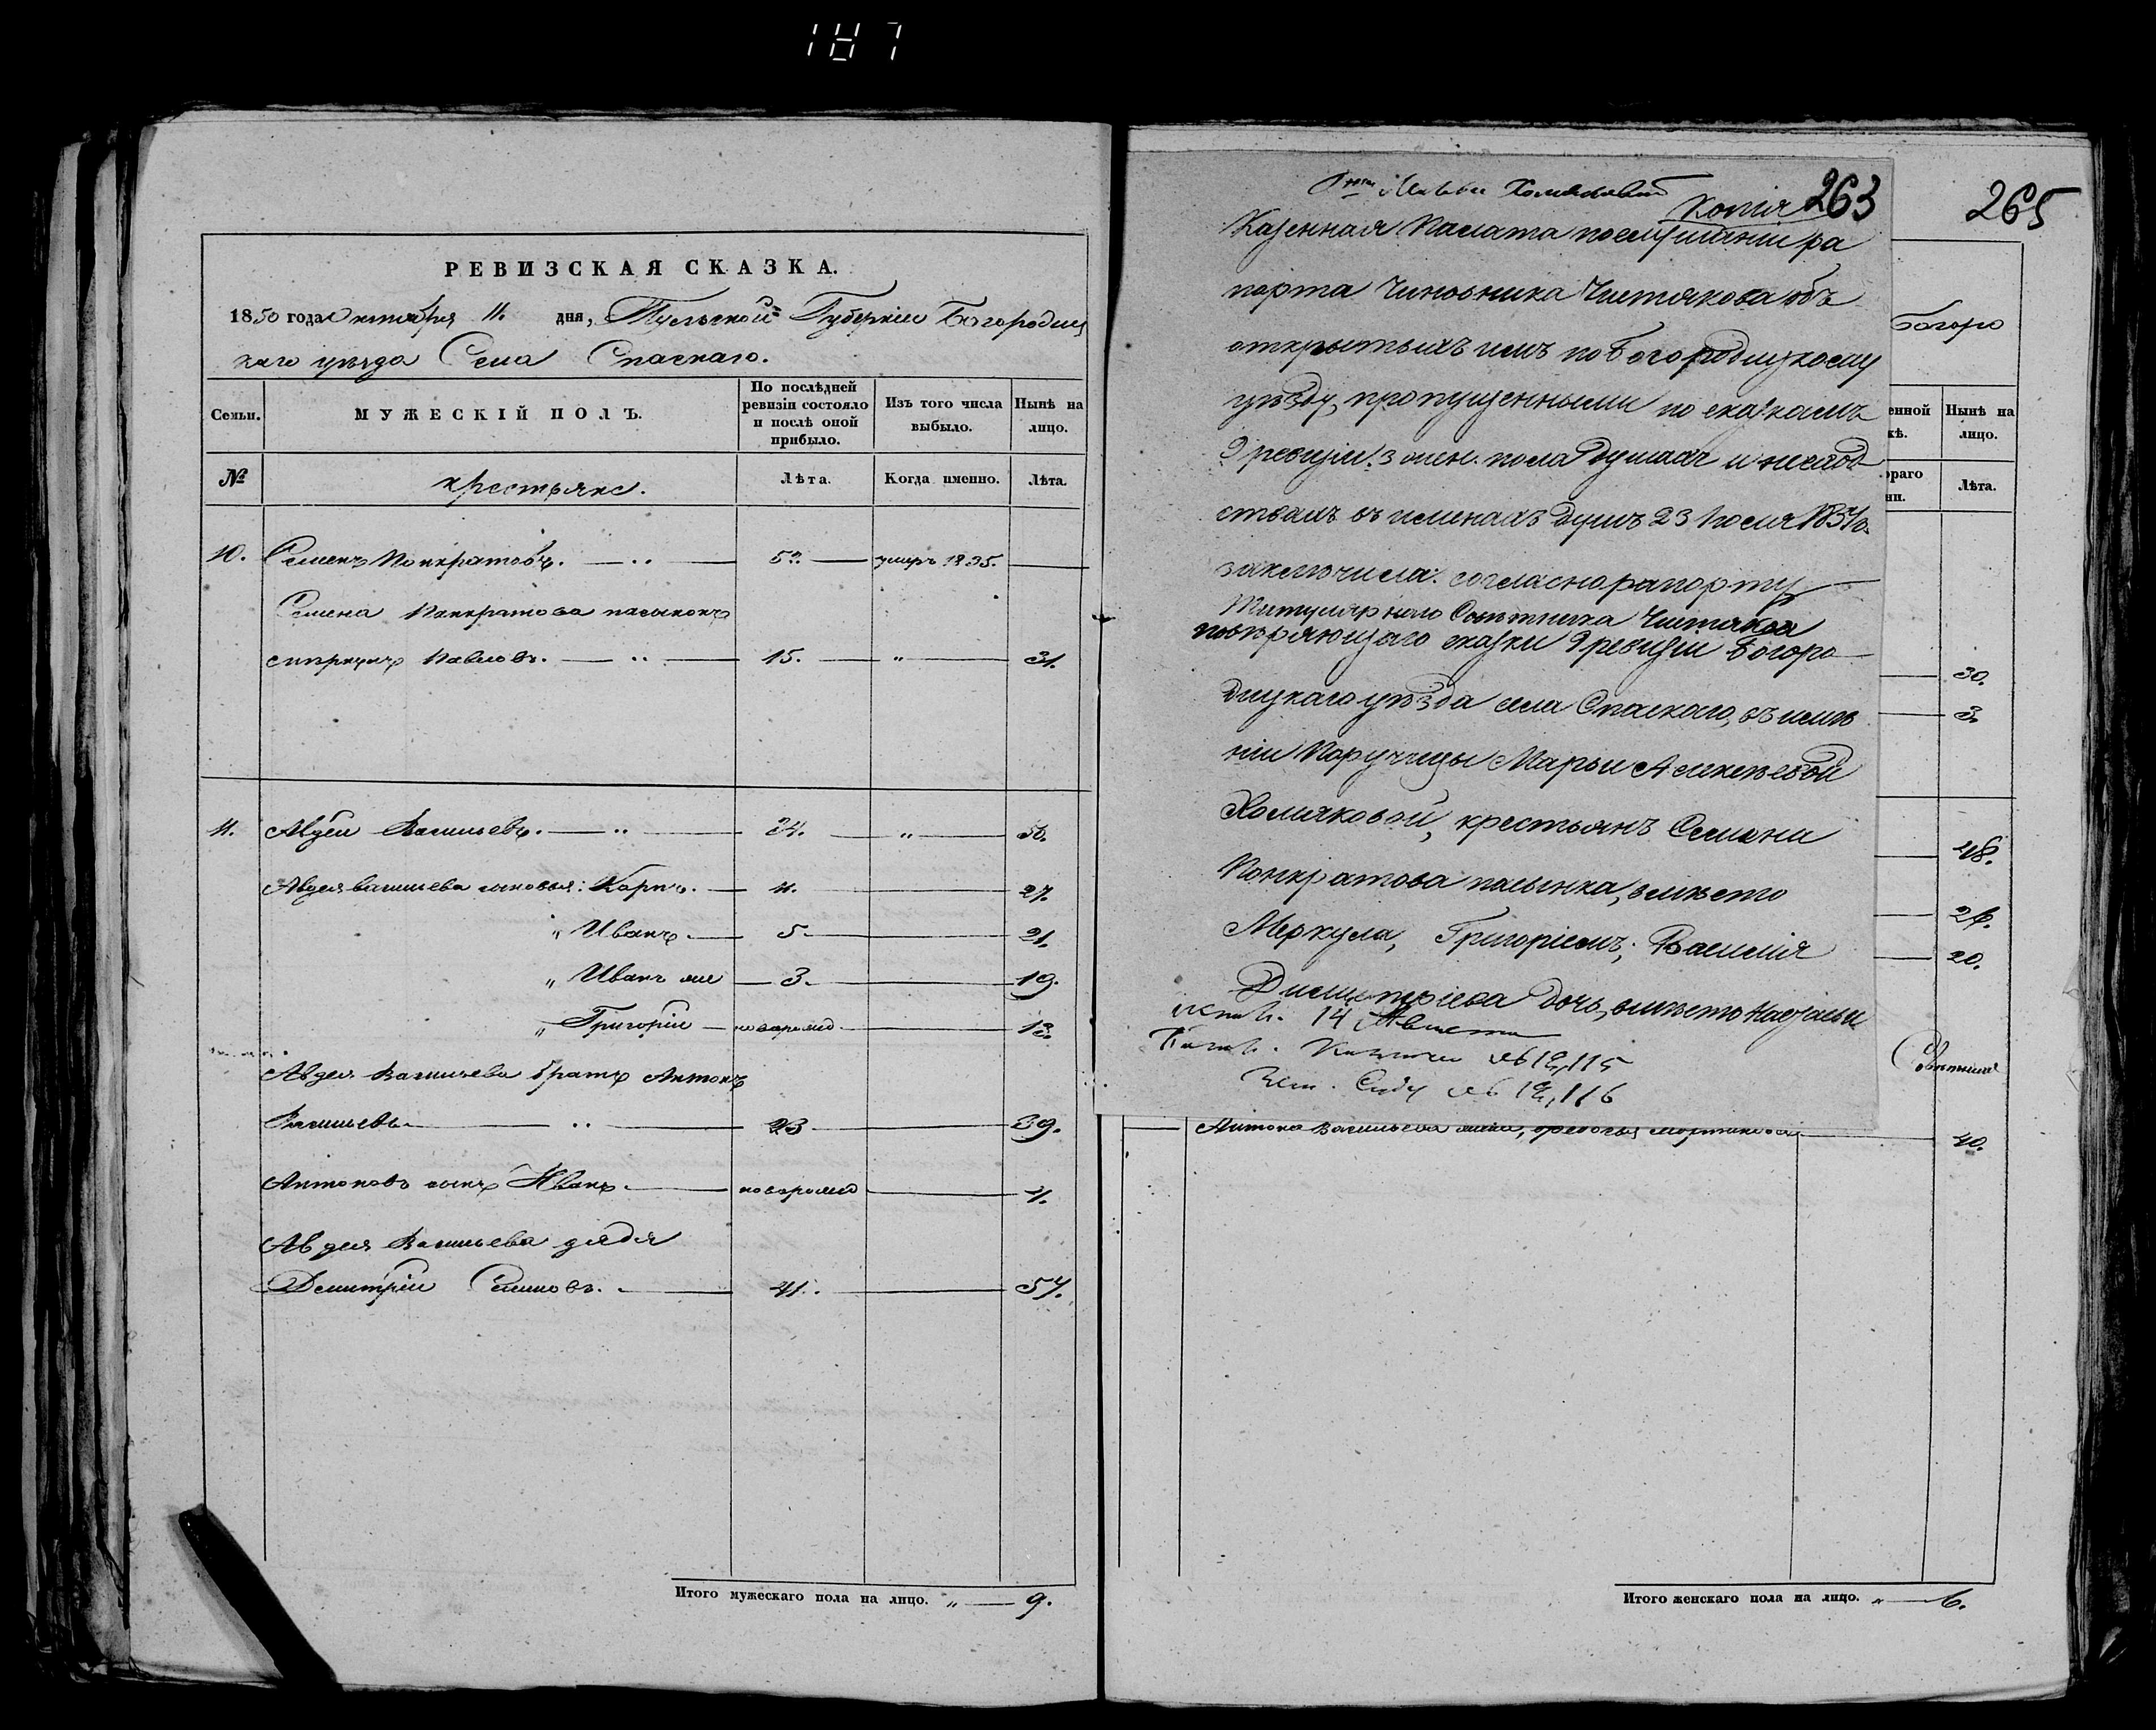 187
РЕВИЗСКАЯ СКАЗКА.
1850 года октября 11. дня, Тульской Губерніи Богородиц
каго уѣзда Села Спаскаго.
Семьи.
МУЖЕСКІЙ ПОЛЪ.
По послѣдней ревизіи состояло и послѣ оной прибыло.
Изъ того числа выбыло.
Нынѣ на лицо.
№
крестьяне.
Лѣта.
Когда именно.
Лѣта.
10. Семенъ Понкратовъ. 52. умеръ 1835.
Семена Понкратова пасынокъ
Павловъ. 15. " 31.
11. Авдей Васильевъ. 34. " 50.
Авдея Васильева сыновья: Карпъ. 11. 27.
" Иванъ. 5. 21.
" Иванъ же 3. 19.
" Григорій новорожд. 13.
Авдея Васильева братъ Антонъ
Васильевъ 23 39.
Антоновъ сынъ Иванъ. новорожд 4.
Авдея Васильева дядя
Дмитрій Семіоновъ. 41. 57.
Итого мужескаго пола на лицо. " 9.
Хомяковой
Копія 263
265
Казенная Палата по слушаніи ра
порта Чиновника Чистякова объ
открытыхъ имъ по Богородицкому
уѣзду, пропущенными по сказкамъ
9 ревизіи: 3 жен. пола душахъ и несход
ствахъ въ именахъ душъ 23 Іюля 1851 г.
заключила: согласно рапорту
Титулярнаго Совѣтника Чистякова
повѣряющаго сказки 9 ревизіи Богоро
дицкаго уѣзда села Спаскаго, въ имѣ
ніи Поручицы Марьи Алексѣевой
Хомяковой, крестьянъ Семена
Понкратова пасынка, вмѣсто
Меркула, Григоріемъ; Василія
Дмитріева дочь, вмѣсто Натальи
14 Августа
№ 12,115
Зем. Суду № 12,116
Богоро
енной
кѣ.
Нынѣ на лицо.
ораго
ни.
Лѣта.
30.
3.
48.
26.
20.
Антона Васильева жена, Мартинова 40.
Итого женскаго пола на лицо. " 6.